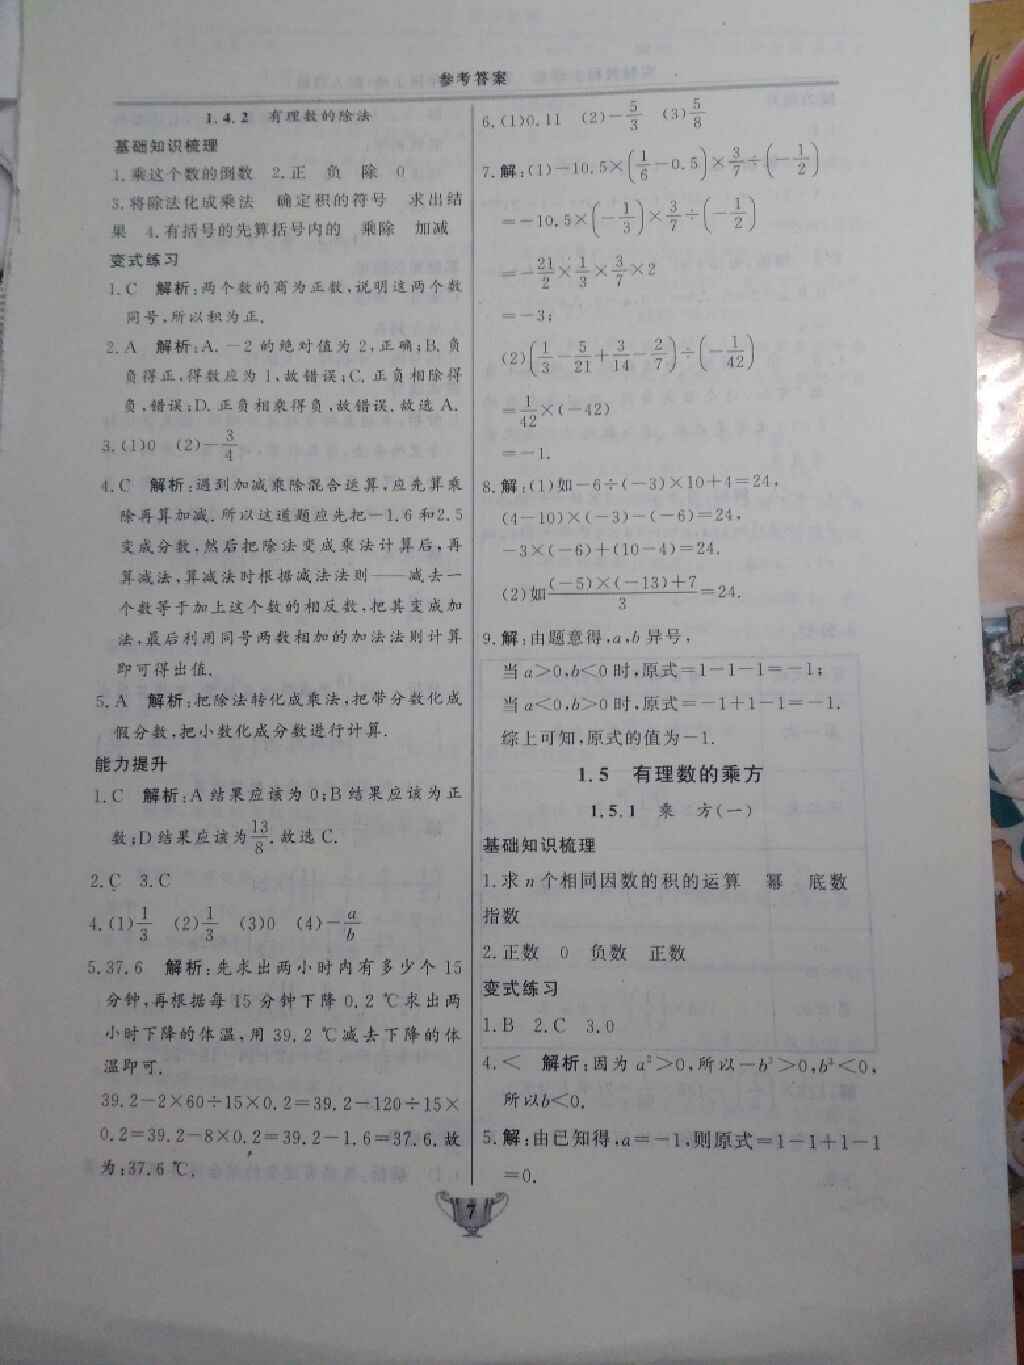 参考答案
1.4.2 有理数的除法
基础知识梳理
1.乘这个数的倒数 2.正 负 除 0
3.将除法化成乘法 确定积的符号 求出结
果 4.有括号的先算括号内的 乘除 加减
变式练习
1.C 解析:两个数的商为正数,说明这两个数
同号,所以积为正.
2.A 解析:A.-2的绝对值为2,正确;B.负
负得正,得数应为1,故错误;C.正负相除得
负,错误;D.正负相乘得负,故错误.故选A.
3.(1)0 (2)-3/4
4.C 解析:遇到加减乘除混合运算,应先算乘
除再算加减.所以这道题应先把-1.6和2.5
变成分数,然后把除法变成乘法计算后,再
算减法,算减法时根据减法法则——减去一
个数等于加上这个数的相反数,把其变成加
法,最后利用同号两数相加的加法法则计算
即可得出值.
5.A 解析:把除法转化成乘法,把带分数化成
假分数,把小数化成分数进行计算.
能力提升
1.C 解析:A结果应该为0;B结果应该为正
数;D结果应该为13/8.故选C.
2.C 3.C
4.(1)1/3 (2)1/3 (3)0 (4)-a/b
5.37.6 解析:先求出两小时内有多少个15
分钟,再根据每15分钟下降0.2℃求出两
小时下降的体温,用39.2℃减去下降的体
温即可.
39.2-2×60÷15×0.2=39.2-120÷15×
0.2=39.2-8×0.2=39.2-1.6=37.6.故
为:37.6℃.
6.(1)0.11 (2)-5/3 (3)5/8
7.解:(1)-10.5×(1/6-0.5)×3/7÷(-1/2)
=-10.5×(-1/3)×3/7÷(-1/2)
=-21/2×1/3×3/7×2
=-3;
(2)(1/3-5/21+3/14-2/7)÷(-1/42)
=1/42×(-42)
=-1.
8.解:(1)如-6÷(-3)×10+4=24,
(4-10)×(-3)-(-6)=24,
-3×(-6)+(10-4)=24.
(2)如((-5)×(-13)+7)/3=24.
9.解:由题意得,a,b异号,
当a>0,b<0时,原式=1-1-1=-1;
当a<0,b>0时,原式=-1+1-1=-1.
综上可知,原式的值为-1.
1.5 有理数的乘方
1.5.1 乘 方(一)
基础知识梳理
1.求n个相同因数的积的运算 幂 底数
指数
2.正数 0 负数 正数
变式练习
1.B 2.C 3.0
4.< 解析:因为a²>0,所以-b³>0,b³<0,
所以b<0.
5.解:由已知得,a=-1,则原式=1-1+1-1
=0.
7